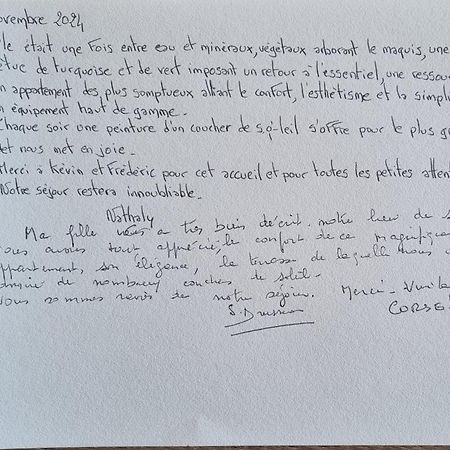 ovembre 2024
le était une fois entre eau et minéraux, végétaux arborant le maquis, une
de turquoise et de vert imposant un retour à l'essentiel, une ressou
n appartement des plus somptueux alliant le confort, l'esthétisme et la simpli
n équipement haut de gamme.
chaque soir une peinture d'un coucher de so-leil s'offre pour le plus g
et nous met en joie.
Merci à Kévin et Frédéric pour cet accueil et pour toutes les petites atten
Notre séjour restera innoubliable.
Nathaly
Ma fille vous a très bien décrit notre lieu de s
ous avons tout apprécié, le confort de ce magnifique
ppartement, son élégance, la terrasse de laquelle nous
de nombreux couchers de soleil.
ous sommes ravis de notre séjour. Merci - Vive la
CORSE